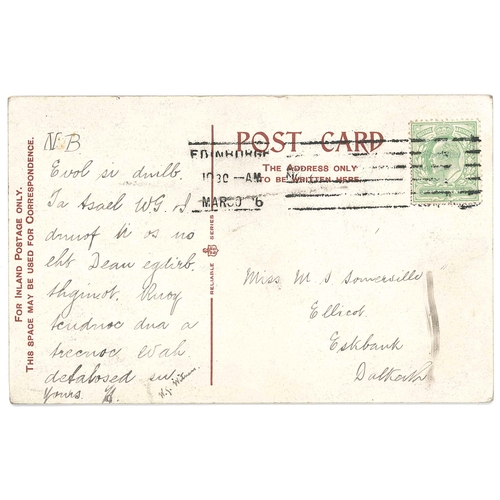 FOR INLAND POSTAGE ONLY.
THIS SPACE MAY BE USED FOR CORRESPONDENCE.
NB
Evol si dnilb.
Ta tsael WG. I
dnuof ti os no
eht Dean egdirb.
thginot. Ruoy
tcudnoc dna a
treecnoc evah
detalosed su.
Yours
POST CARD
THE ADDRESS ONLY
TO BE WRITTEN HERE.
EDINBURGH
10 30 AM
MAR 30 6
RELIABLE SERIES
Miss M S Somerville
Ellicot
Eskbank
Dalkeith